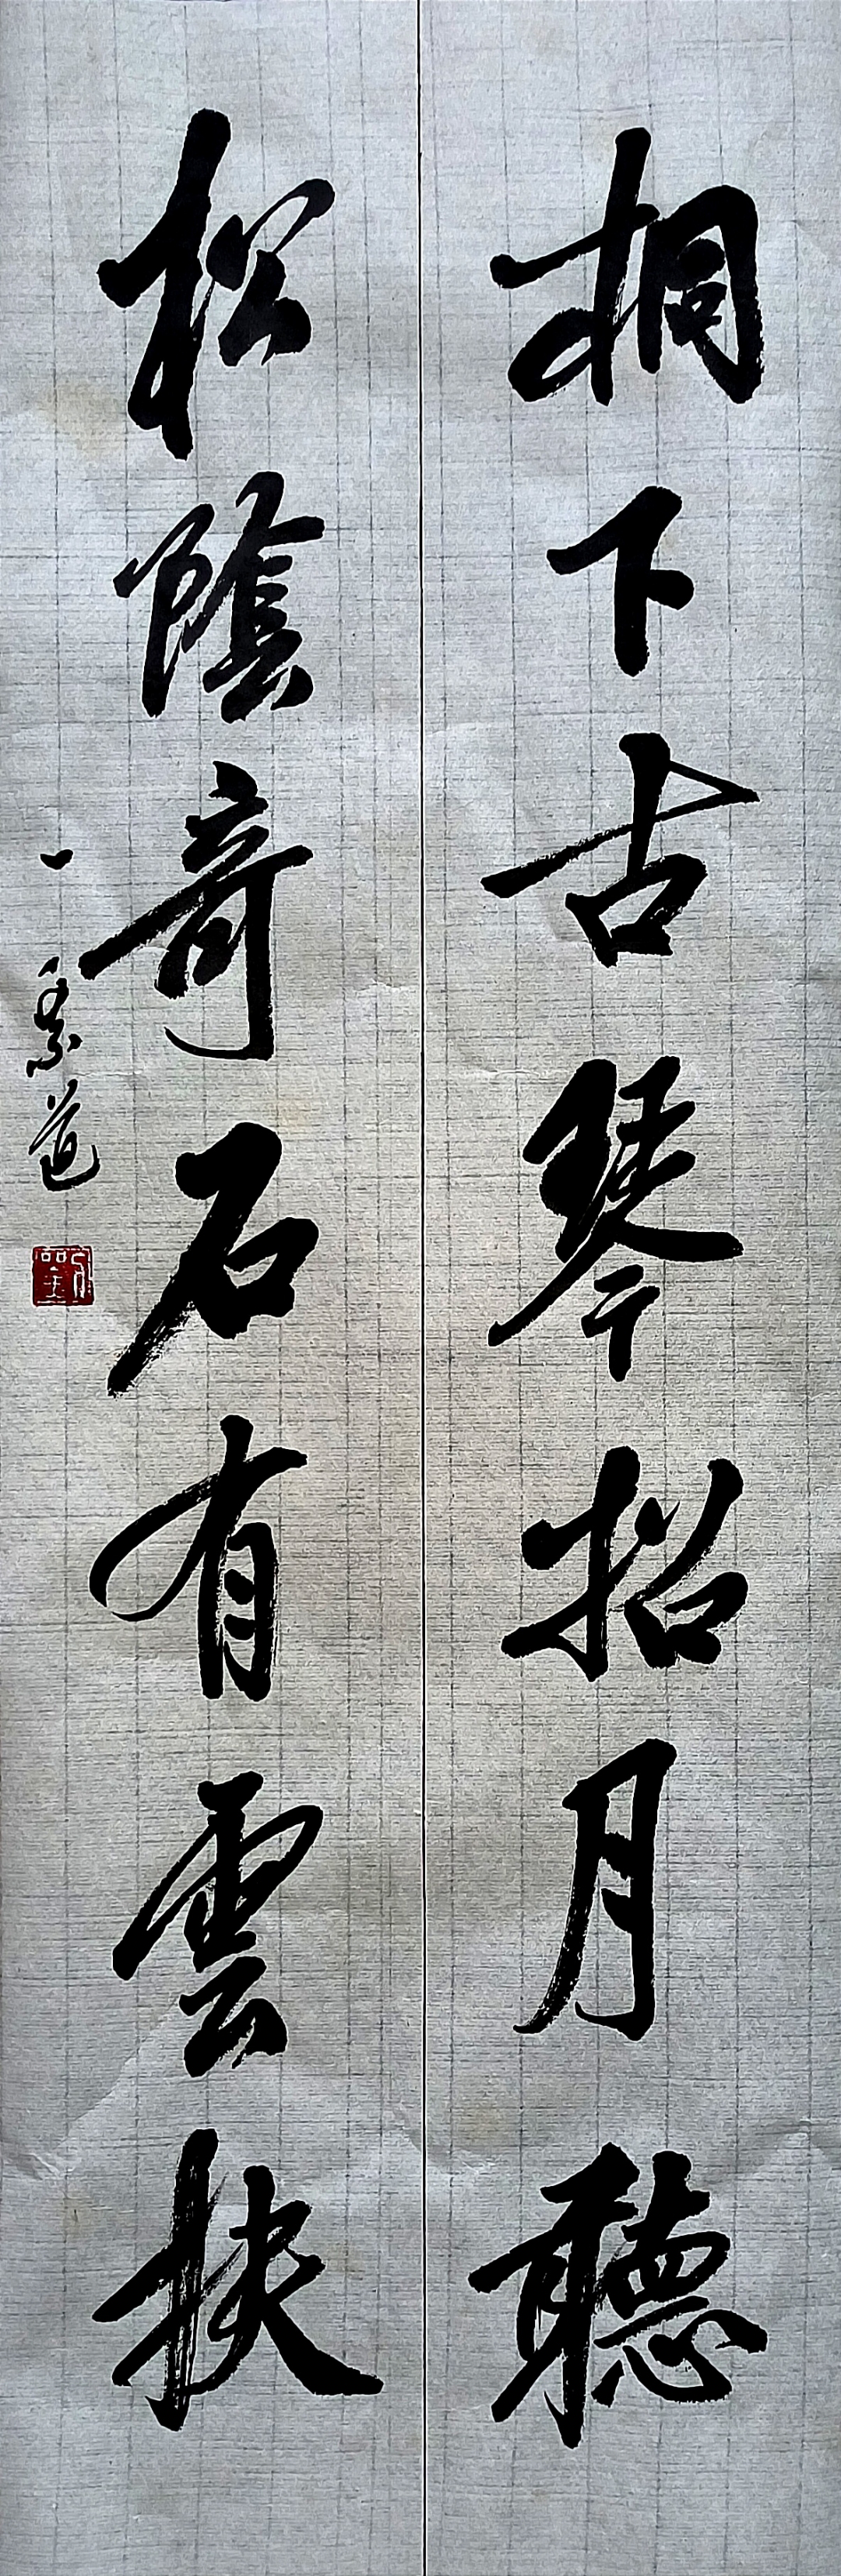 桐下古琴招月聽
松陰奇石有雲扶
一素道